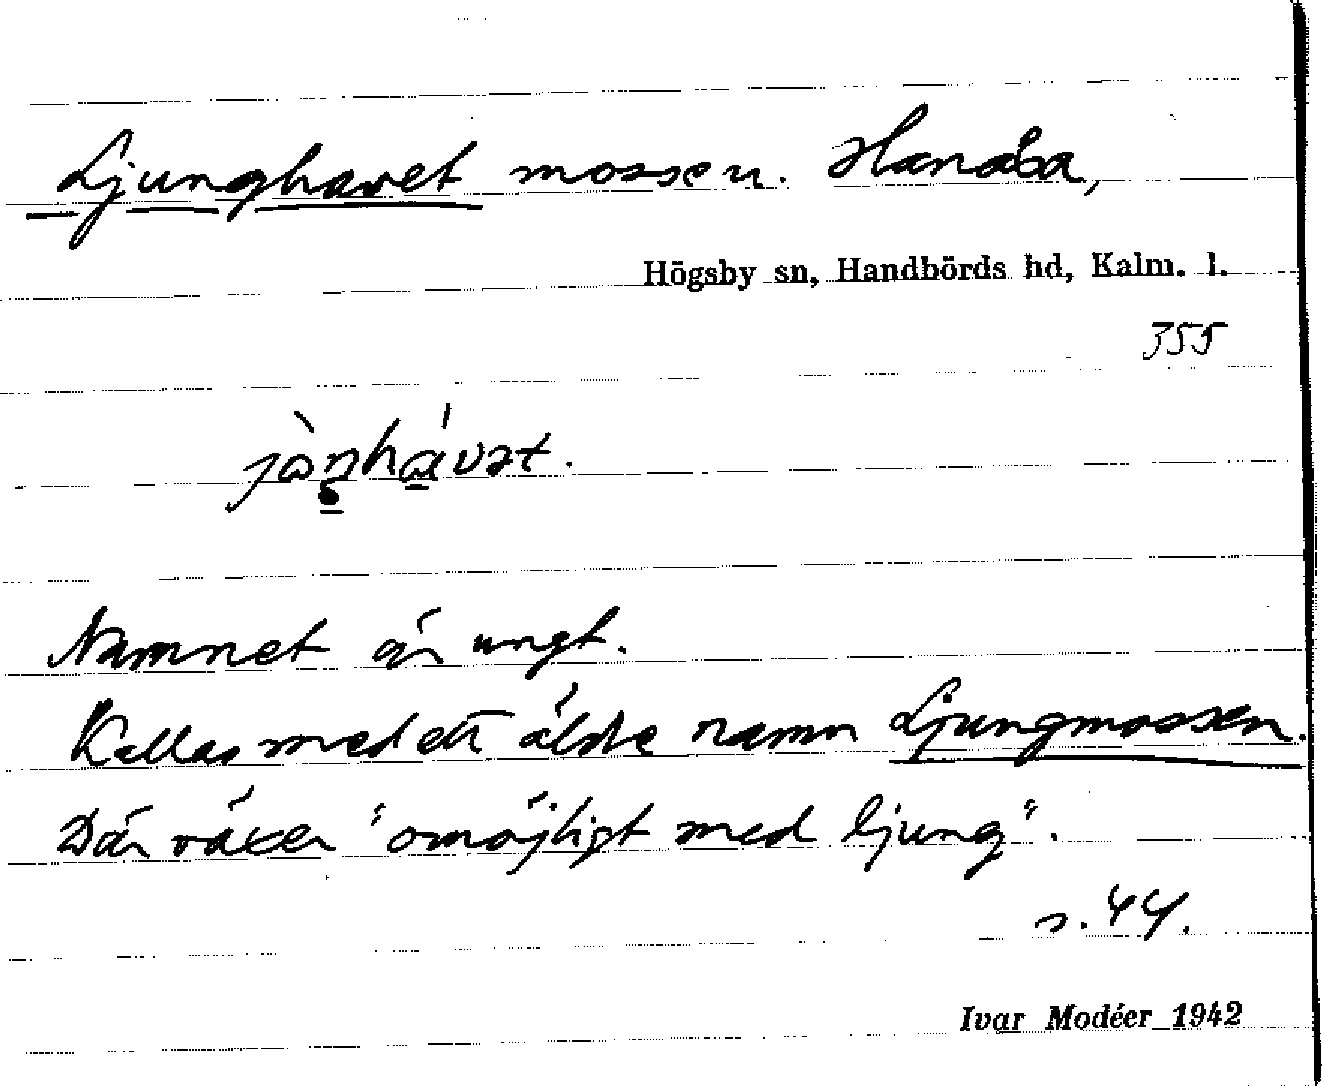 Ljunghavet mossen. Hanåsa,
Högsby sn, Handbörds hd, Kalm. l.
355
Namnet är ungt.
Kallas med ett äldre namn Ljungmossen.
Där växer "omöjligt med ljung".
s. 44.
Ivar Modéer 1942